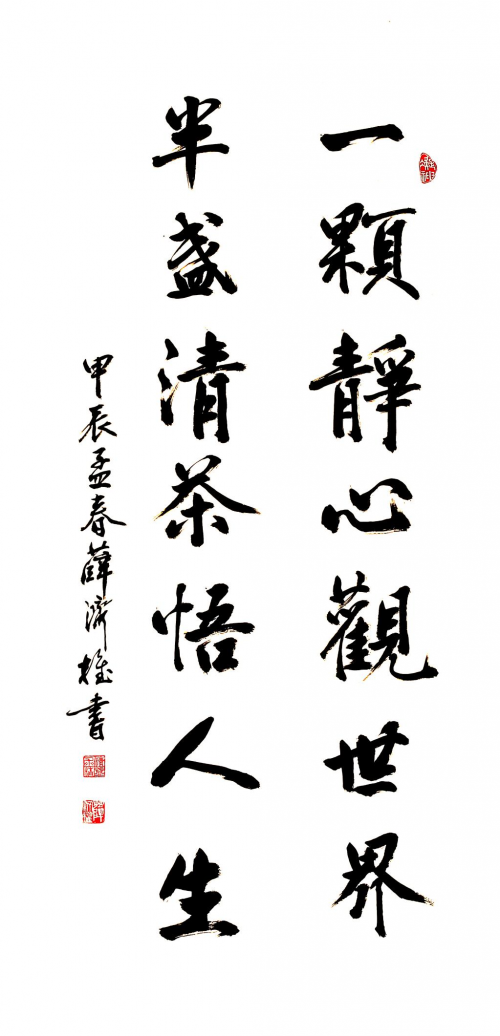 一顆靜心觀世界
半盞清茶悟人生
甲辰孟春薛濟雄書